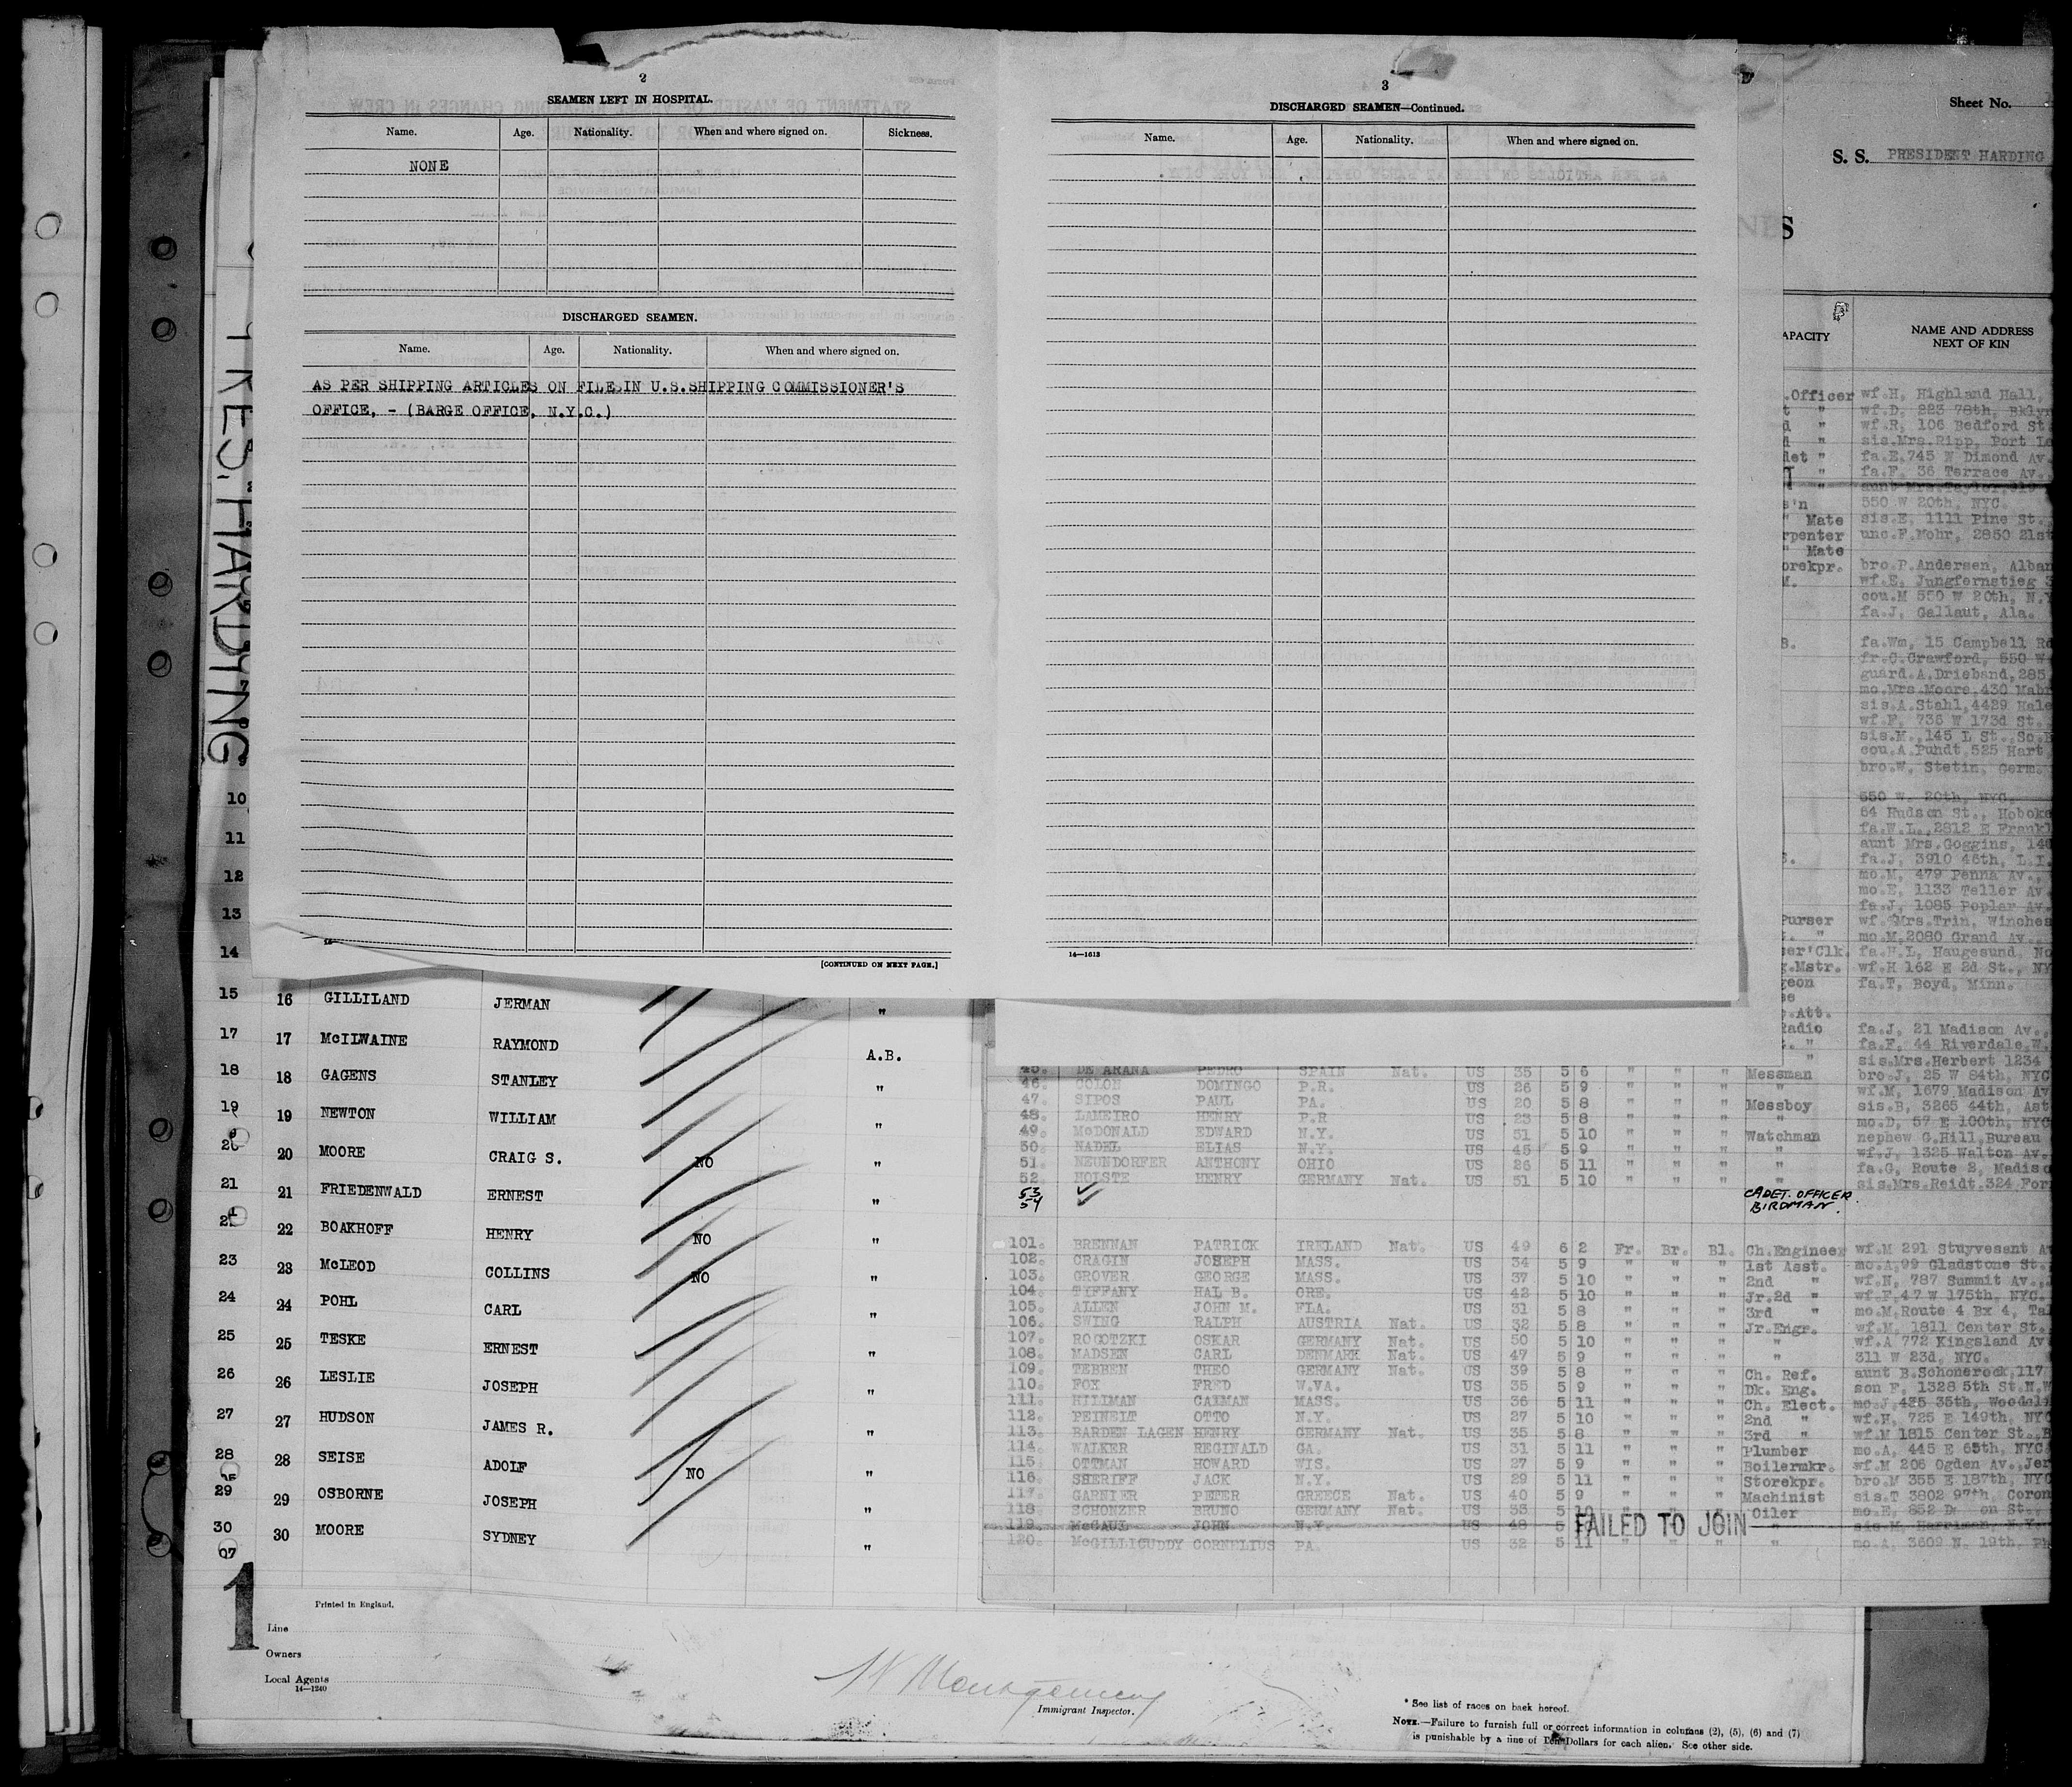 2
SEAMEN LEFT IN HOSPITAL.
Name. Age. Nationality. When and where signed on. Sickness.
NONE
DISCHARGED SEAMEN.
Name. Age. Nationality. When and where signed on.
AS PER SHIPPING ARTICLES ON FILE IN U.S.SHIPPING COMMISSIONER'S
OFFICE, - (BARGE OFFICE, N.Y.C.)
[CONTINUED ON NEXT PAGE.]
3
DISCHARGED SEAMEN—Continued.
Name. Age. Nationality. When and where signed on.
14—1613
Sheet No.
S. S. PRESIDENT HARDING
NAME AND ADDRESS
NEXT OF KIN
PRES. HARDING
.Officer wf.H, Highland Hall,
" wf.D. 223 78th, Bklyn
" wf.R, 106 Bedford St
" sis.Mrs.Ripp, Port
" fa.E.745 W Dimond Av.
" fa.F. 36 Terrace Av.
" aunt Mrs.Taylor,
550 W 20th, NYC.
" Mate sis.E, 1111 Pine St.
unc.F.Mohr, 2850 21st
" Mate
bro.P.Andersen, Alban
wf.E, Jungfernstieg
cou.M 550 W 20th, N.Y
fa.J, Gallaut, Ala.
fa.Wm, 15 Campbell Rd
fr.C.Crawford, 550 W
guard.A.Drieband, 285
mo.Mrs.Moore, 430
sis.A.Stahl, 4429 Hale
wf.F, 736 W 173d St.
sis.M., 145 L St., So.B
cou.A.Pundt 525 Hart
bro.W. Stetin, Germ.
550 W. 20th, NYC.
64 Hudson St., Hoboke
fa.W.L., 2812 E Frankl
aunt Mrs.Goggins, 140
fa.J, 3910 48th, L.I.
mo.M, 479 Penna Av.,
mo.E, 1133 Teller Av.
fa.J, 1085 Poplar Av.
Purser wf. Mrs.Trin, Winches
" mo.M.2080 Grand Av.
fa.H.L, Haugesund, No
wf.H 162 E 2d St., NY
fa.T, Boyd, Minn.
.Att.
Radio fa.J, 21 Madison Av.,
" fa.F, 44 Riverdale.W.
" sis.Mrs.Herbert 1234
10
11
12
13
14
15 16 GILLILAND JERMAN "
17 17 McILWAINE RAYMOND A.B.
18 18 GAGENS STANLEY "
19 19 NEWTON WILLIAM "
20 20 MOORE CRAIG S. NO "
21 21 FRIEDENWALD ERNEST "
22 22 BOAKHOFF HENRY NO "
23 23 McLEOD COLLINS NO "
24 24 POHL CARL "
25 25 TESKE ERNEST "
26 26 LESLIE JOSEPH "
27 27 HUDSON JAMES R. "
28 28 SEISE ADOLF NO "
29 29 OSBORNE JOSEPH "
30 30 MOORE SYDNEY "
1
45. DE ARANA PEDRO SPAIN Nat. US 35 5 6 " " " Messman bro.J, 25 W 84th, NYC
46. COLON DOMINGO P.R. US 26 5 9 " " " " wf.M, 1679 Madison Av
47. SIPOS PAUL PA. US 20 5 8 " " " Messboy sis.B, 3265 44th, Ast
48. LAMEIRO HENRY P.R US 23 5 8 " " " " mo.D, 57 E 100th, NYC
49. McDONALD EDWARD N.Y. US 51 5 10 " " " Watchman nephew G.Hill,Bureau
50. NADEL ELIAS N.Y. US 45 5 9 " " " " wf.J, 1325 Walton Av.
51. NEUNDORFER ANTHONY OHIO US 26 5 11 " " " " fa.G, Route 2, Madiso
52. HOLSTE HENRY GERMANY Nat. US 51 5 10 " " " " sis.Mrs.Reidt 324 For
53 CADET. OFFICER.
54 BIRDMAN.
101. BRENNAN PATRICK IRELAND Nat. US 49 6 2 Fr. Br. Bl. Ch.Engineer wf.M 291 Stuyvesant A
102. CRAGIN JOSEPH MASS. US 34 5 9 " " " 1st Asst. mo.A,99 Gladstone St.
103. GROVER GEORGE MASS. US 37 5 10 " " " 2nd " wf.N, 787 Summit Av.,
104. TIFFANY HAL B. ORE. US 42 5 10 " " " Jr.2d " wf.F,47 W 175th, NYC.
105. ALLEN JOHN M. FLA. US 31 5 8 " " " 3rd " mo.M,Route 4 Bx 4, Tal
106. SWING RALPH AUSTRIA Nat. US 32 5 8 " " " Jr.Engr. wf.M, 1811 Center St.
107. ROGOTZKI OSKAR GERMANY Nat. US 50 5 10 " " " " wf.A 772 Kingsland Av
108. MADSEN CARL DENMARK Nat. US 47 5 9 " " " " 311 W 23d, NYC.
109. TEBBEN THEO GERMANY Nat. US 39 5 8 " " " Ch. Ref. aunt B.Schonerock,117
110. FOX FRED W.VA. US 35 5 9 " " " Dk. Eng. son F. 1328 5th St.N.W
111. HILLMAN CALMAN MASS. US 36 5 11 " " " Ch. Elect. mo.J,425 35th, Woodcl
112. PEINELT OTTO N.Y. US 27 5 10 " " " 2nd " wf.H, 725 E 149th, NYC
113. BARDEN LAGEN HENRY GERMANY Nat. US 35 5 8 " " " 3rd " wf.M 1815 Center St.,B
114. WALKER REGINALD GA. US 31 5 11 " " " Plumber mo.A, 445 E 65th, NYC
115. OTTMAN HOWARD WIS. US 27 5 9 " " " Boilermkr. wf.M 206 Ogden Av.,Jer
116. SHERIFF JACK N.Y. US 29 5 11 " " " Storekpr. bro.M 355 E 187th, NYC
117. GARNIER PETER GREECE Nat. US 40 5 9 " " " Machinist sis.T 3802 97th, Coron
118. SCHONZER BRUNO GERMANY Nat. US 33 5 10 Oiler mo.E, 852 on St.
119. McCAUL JOHN N.Y. US 48 5 FAILED TO JOIN
120. McGILLICUDDY CORNELIUS PA. US 32 5 11 " " " " mo.A, 3609 N. 19th, Ph
Printed in England.
Line
Owners
Local Agents
14—1240
Montgomery
Immigrant Inspector.
* See list of races on back hereof.
NOTE.—Failure to furnish full or correct information in columns (2), (5), (6) and (7)
is punishable by a fine of Ten Dollars for each alien. See other side.